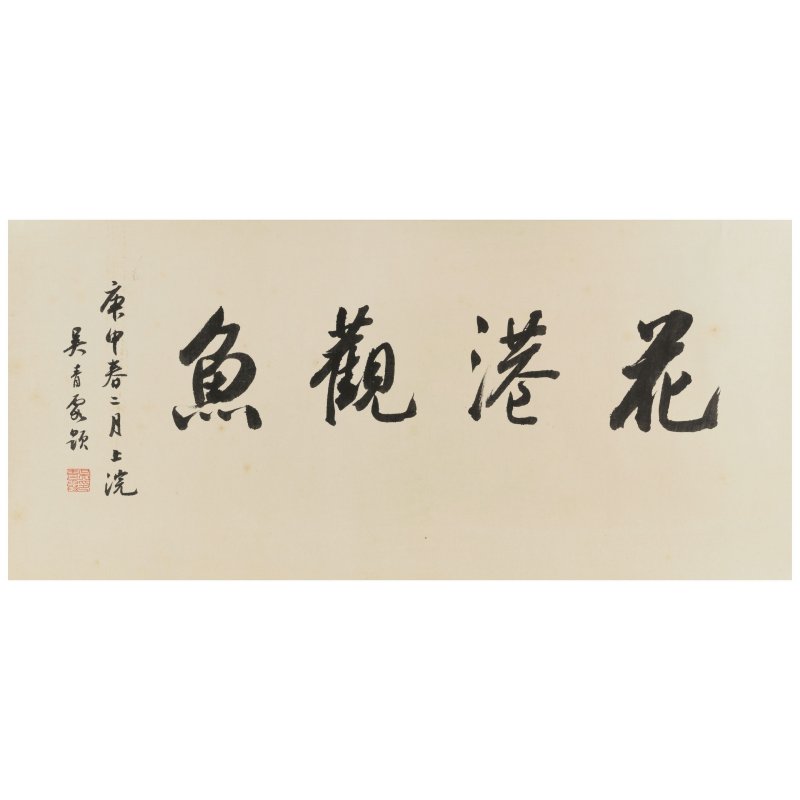 花港觀魚
庚申春二月上浣
吳青霞題